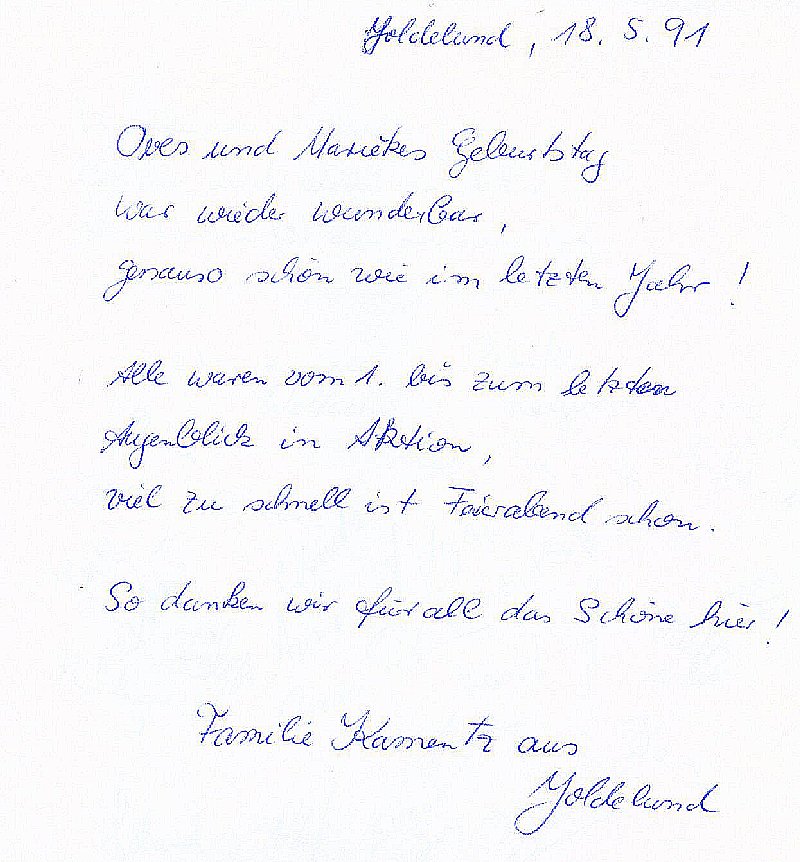 Joldelund, 18. 5. 91
Oves und Mariekes Geburtstag
war wieder wunderbar,
genauso schön wie im letzten Jahr!
Alle waren vom 1. bis zum letzten
Augenblick in Aktion,
viel zu schnell ist Feierabend schon.
So danken wir für all das Schöne hier!
Familie Kamentz aus
Joldelund